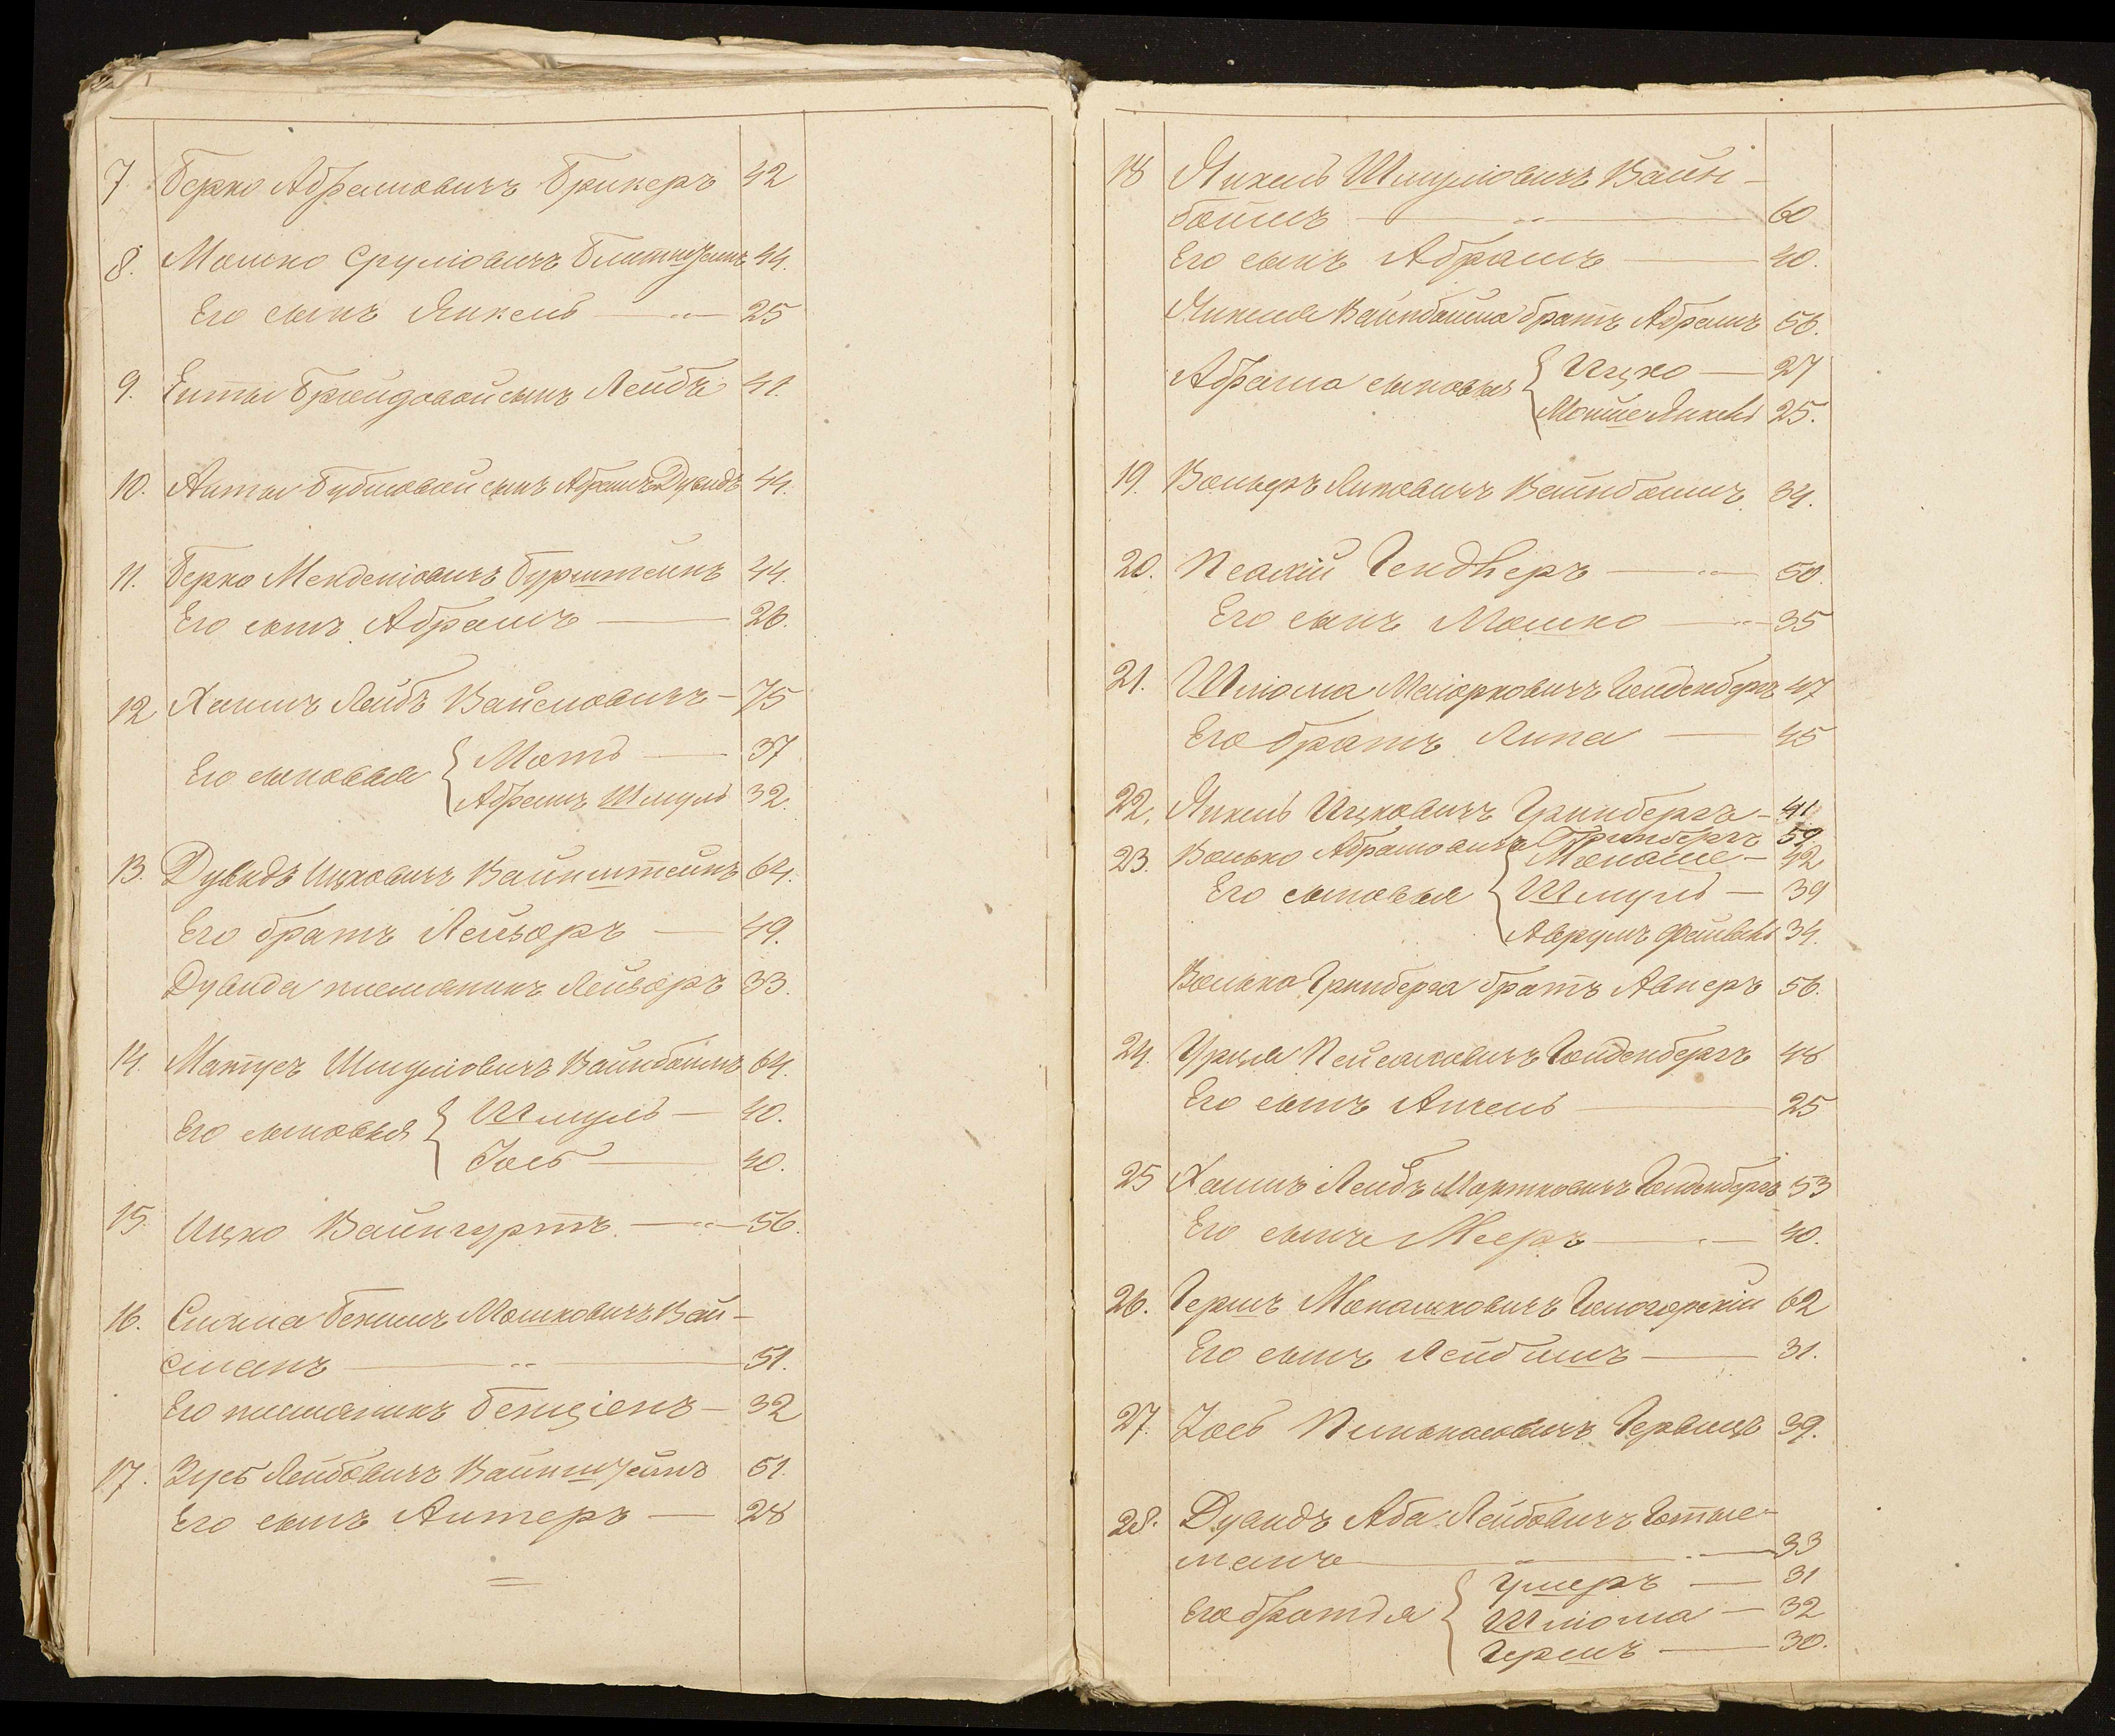 7. Берко Абрамовичъ Брикеръ 42
8. Мошко Сруліовичъ Блитштейнъ 44.
Его сынъ Янкель 25
9. Енты Брейдовой сынъ Лейбъ 41.
10. сынъ Абрамъ Дувидъ 44.
11. Берко Менделіовичъ Бурштейнъ 44.
Его сынъ Абрамъ 26.
12 Хаимъ Лейбъ 75
Его сыновья Моть 37
Абрамъ Шмуль 32.
13. Дувидъ Ицковичъ Вайнштейнъ 64.
Его братъ Лейзоръ 49.
Дувида племянникъ Лейзоръ 33.
14. Матусъ Шмуліовичъ Вайнбоймъ 64.
Его сыновья Шмуль 40.
Іось 40.
15. Ицко Вайнгуртъ 56.
16. Сахно Беніомъ Мошковичъ Вай-
сманъ 51.
Его племяникъ Бенціонъ 32
17. Зусь Лейбовичъ Вайнштейнъ 51.
Его сынъ Алтеръ 28
18 Янкель Шмуліовичъ Вайн-
боймъ 60
Его сынъ Абрамъ 40.
Янкеля Вайнбойма братъ Абрамъ 56.
Абрама сыновья Ицко 27
Мойше Янкель 25.
19. Вольфъ Липовичъ Вайнбоймъ 34.
20. Гендлеръ 50.
Его сынъ Мошко 35
21. Шліома Меіорковичъ Гольденбергъ 47
Его братъ Липа 45
22. Янкель Ицковичъ Гринбергъ 41
23. Волько Абрамовичъ Гринбергъ 59
Его сыновья Монаше 42
Шмуль 39
Аврумъ Файвель 34.
Волька Гринберга братъ Авнеръ 56.
24. Пейсаховичъ Гольденбергъ 48
Его сынъ Анчель 25
25 Хаимъ Лейбъ Мортковичъ Гольденбергъ 53
Его сынъ Мееръ 40.
26. Гершъ Монашковичъ Гологорскій 62
Его сынъ Лейбишъ 31.
27. Іось Пинькасовичъ 39.
28. Дувидъ Аба Лейбовичъ
манъ 33
Его братья Ушеръ 31
Шліома 32
Гершъ 30.